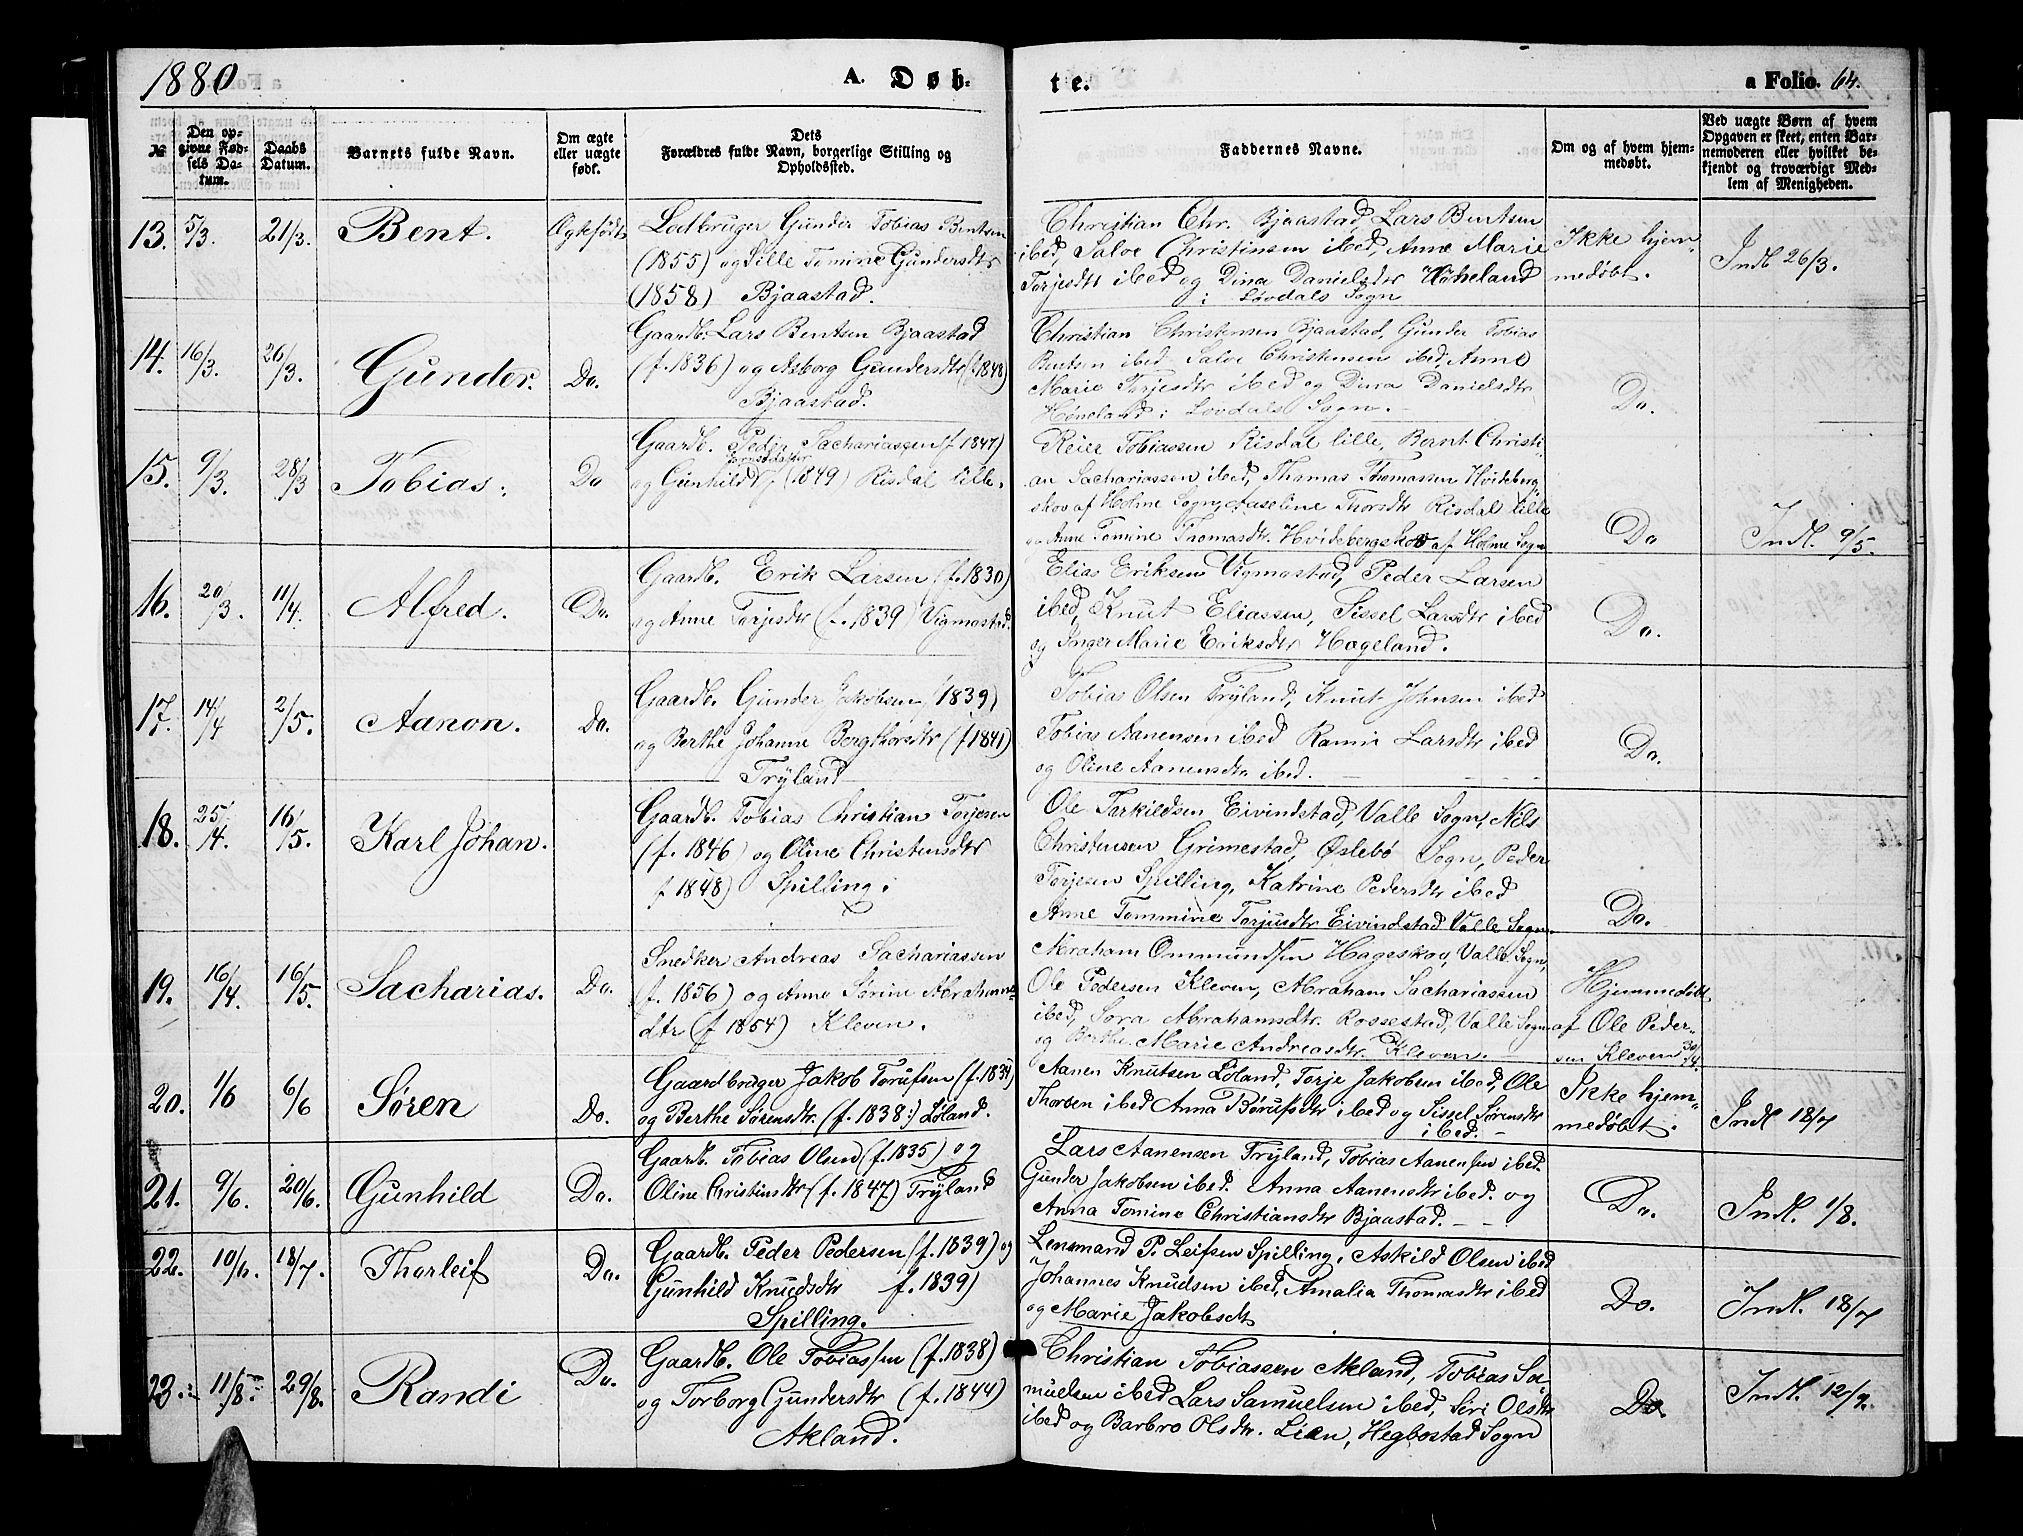 1880
A. Døb-
te.
a Folio. 64.
№
Den op-
givne Fød-
sels Da-
tum.
Daabs
Datum.
Barnets fulde Navn.
Om ægte
eller uægte
født.
Dets
Forældres fulde Navn, borgerlige Stilling og
Opholdssted.
Faddernes Navne.
Om og af hvem hjem-
medøbt.
Ved uægte Børn af hvem
Opgaven er skeet, enten Bar-
nemoderen eller hvilket be-
kjendt og troværdigt Med-
lem af Menigheden.
13. 5/3. 21/3. Bent. Ægtefødt
Lodbruger Gunder Tobias Bentsen
(1855) og Sille Tomine Gundersdtr
(1858) Bjaastad.
Christian Chr. Bjaastad, Lars Bentsen
ibed, Salve Christensen ibed, Anne Marie
Torjesdtr ibed og Dina Danielsdtr Høheland
i Løvdals Sogn
Ikke hjem-
medøbt.
Indl 26/3.
14. 16/3. 26/3. Gunder. Do.
Gaardb. Lars Bentsen Bjaastad
(f. 1836) og Asborg Gundersdtr (f. 1848)
Bjaastad.
Christian Christensen Bjaastad, Gunder Tobias
Bentsen ibed Salve Christensen ibed, Anne
Marie Torjesdtr ibed og Dina Danielsdtr
Høheland i Lovdals Sogn.
Do.
15. 9/3. 28/3 Tobias. Do
Gaardb. Peder Sachariassen (f. 1847)
og Gunhild (1849) Risdal lille.
Reier Tobiassen Risdal lille, Bernt Christi-
an Sachariassen ibed, Thomas Thomassen Hvideberg
skov af Holme Sogn, Aaseline Thorsdtr Risdal lille
og Anne Tomine Thomasdtr. Hvidebergskov af Holme Sogn
Do
Indl. 9/5.
16. 20/3. 11/4. Alfred. Do.
Gaardb. Erik Larsen (f. 1830)
og Anne Torjesdtr (f. 1839 Vigmostad.
Elias Eriksen Vigmostad, Peder Larsen
ibed, Knut Eliassen, Sissel Larsdtr ibed
og Inger Marie Eriksdtr Hageland.
Do.
17. 14/4 2/5. Aanon. Do.
Gaardb. Gunder Jakobsen (1839)
og Berthe Johanne Bergthorsdtr (f 1841)
Tryland
Tobias Olsen Tryland, Knut Johnsen ibed
Tobias Aanensen ibed Larsdtr ibed
og Oline Aanensdtr ibed.
Do.
18. 25/4. 16/5. Karl Johan.
Gaardb. Tobias Christian Torjesen
(f. 1846) og Oline Christensdtr
f 1848) Spilling.
Ole Tarkildsen Eivindstad, Valle Sogn, Nils
Christensen Grimestad, Øslebø Sogn, Peder
Torjesen Spilling, Katrine Pedersdtr ibed
Anne Tommine Torjusdtr Eivindstad Valle Sogn.
Do.
19. 16/4. 16/5. Sacharias. Do.
Snedker Andreas Sachariassen
(f. 1856) og Anne Sørine Abrahams-
dtr (f 1854) Kleven.
Abraham Ommundsen Hageskov, Valle Sogn,
Ole Pedersen Kleven, Abraham Sachariassen
ibed, Sora Abrahamsdtr. Rossestad, Valle Sogn
og Berthe Marie Andreasdtr Kleven.
Hjemmedøbt
af Ole Peder-
sen Kleven 30/4.
20. 1/6 6/6 Søren Do.
Gaardbruger Jakob Torufsen (f. 1839)
og Berthe Sørensdtr. (f. 1838.) Løland.
Aanen Knutsen Løland, Torje Jakobsen ibed, Ole
Thorsen ibed Anna Børufsdtr ibed og Sissel Sørensdtr
ibed.
Ikke hjem-
medøbt.
Indl 18/7
21. 9/6. 20/6. Gunhild Do.
Gaardb. Tobias Olsen (f. 1835) og
Oline Christensdtr (f. 1847) Tryland
Lars Aanensen Tryland, Tobias Aanensen ibed.
Gunder Jakobsen ibed. Anna Aanensdtr ibed. og
Anna Tomine Christiansdtr Bjaastad.
Do.
Indl. 1/8.
22. 10/6. 18/7. Thorleif Do.
Gaardb. Peder Pedersen (f. 1839) og
Gunhild Knudsdtr f. 1839)
Spilling.
Lensmand P. Leifsen Spilling, Askild Olsen ibed
Johannes Knudsen ibed, Amalia Thomasdtr ibed
og Marie Jakobsdt
Do.
Indl. 18/7
23. 11/8. 29/8. Randi Do.
Gaardb. Ole Tobiassen (f. 1838)
og Torborg Gundersdtr (f. 1844)
Akland.
Christian Tobiassen Akland, Tobias Sa-
muelsen ibed Lars Samuelsen ibed, Seri Olsdtr
ibed og Barbro Olsdtr. Lien, Hegbostad Sogn
Do.
Indl. 12/9.